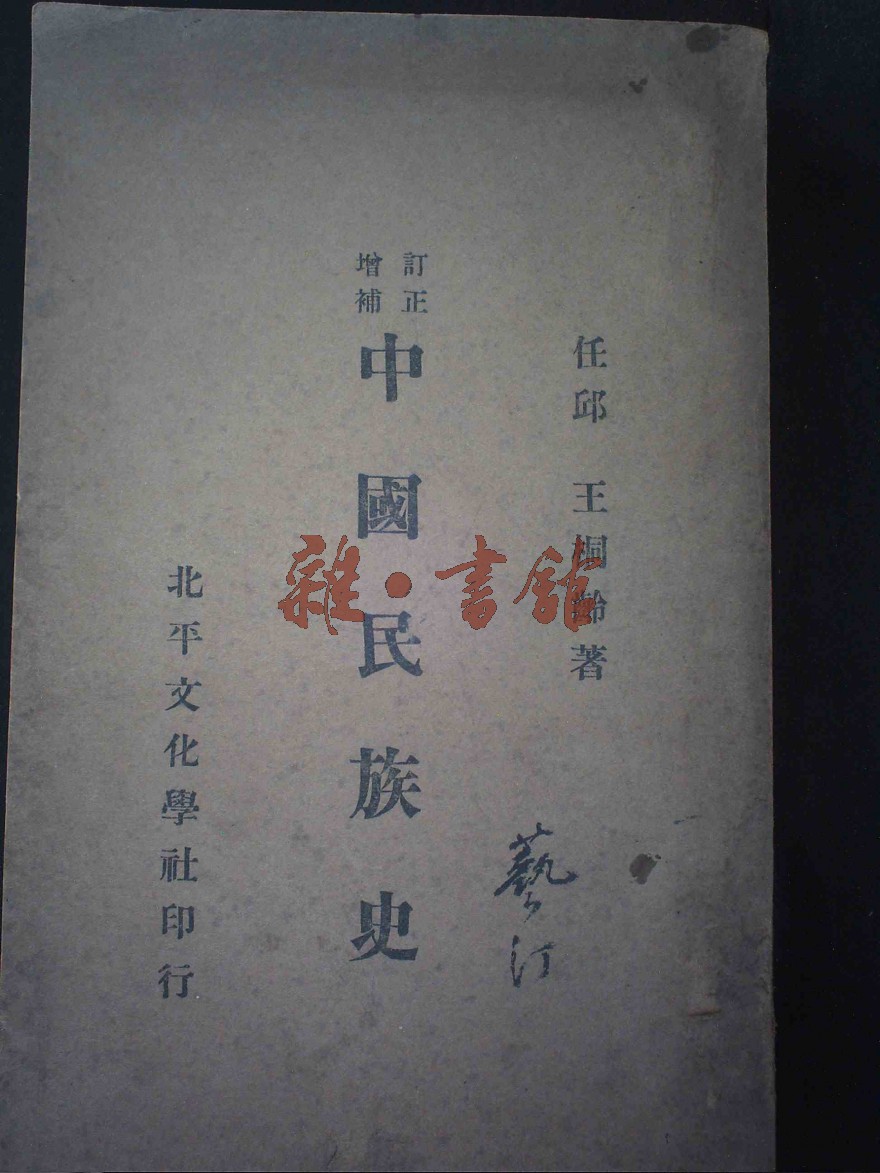 任邱 王桐齡著
訂正
增補
中國民族史
北平文化學社印行
藝汀
雜·書館